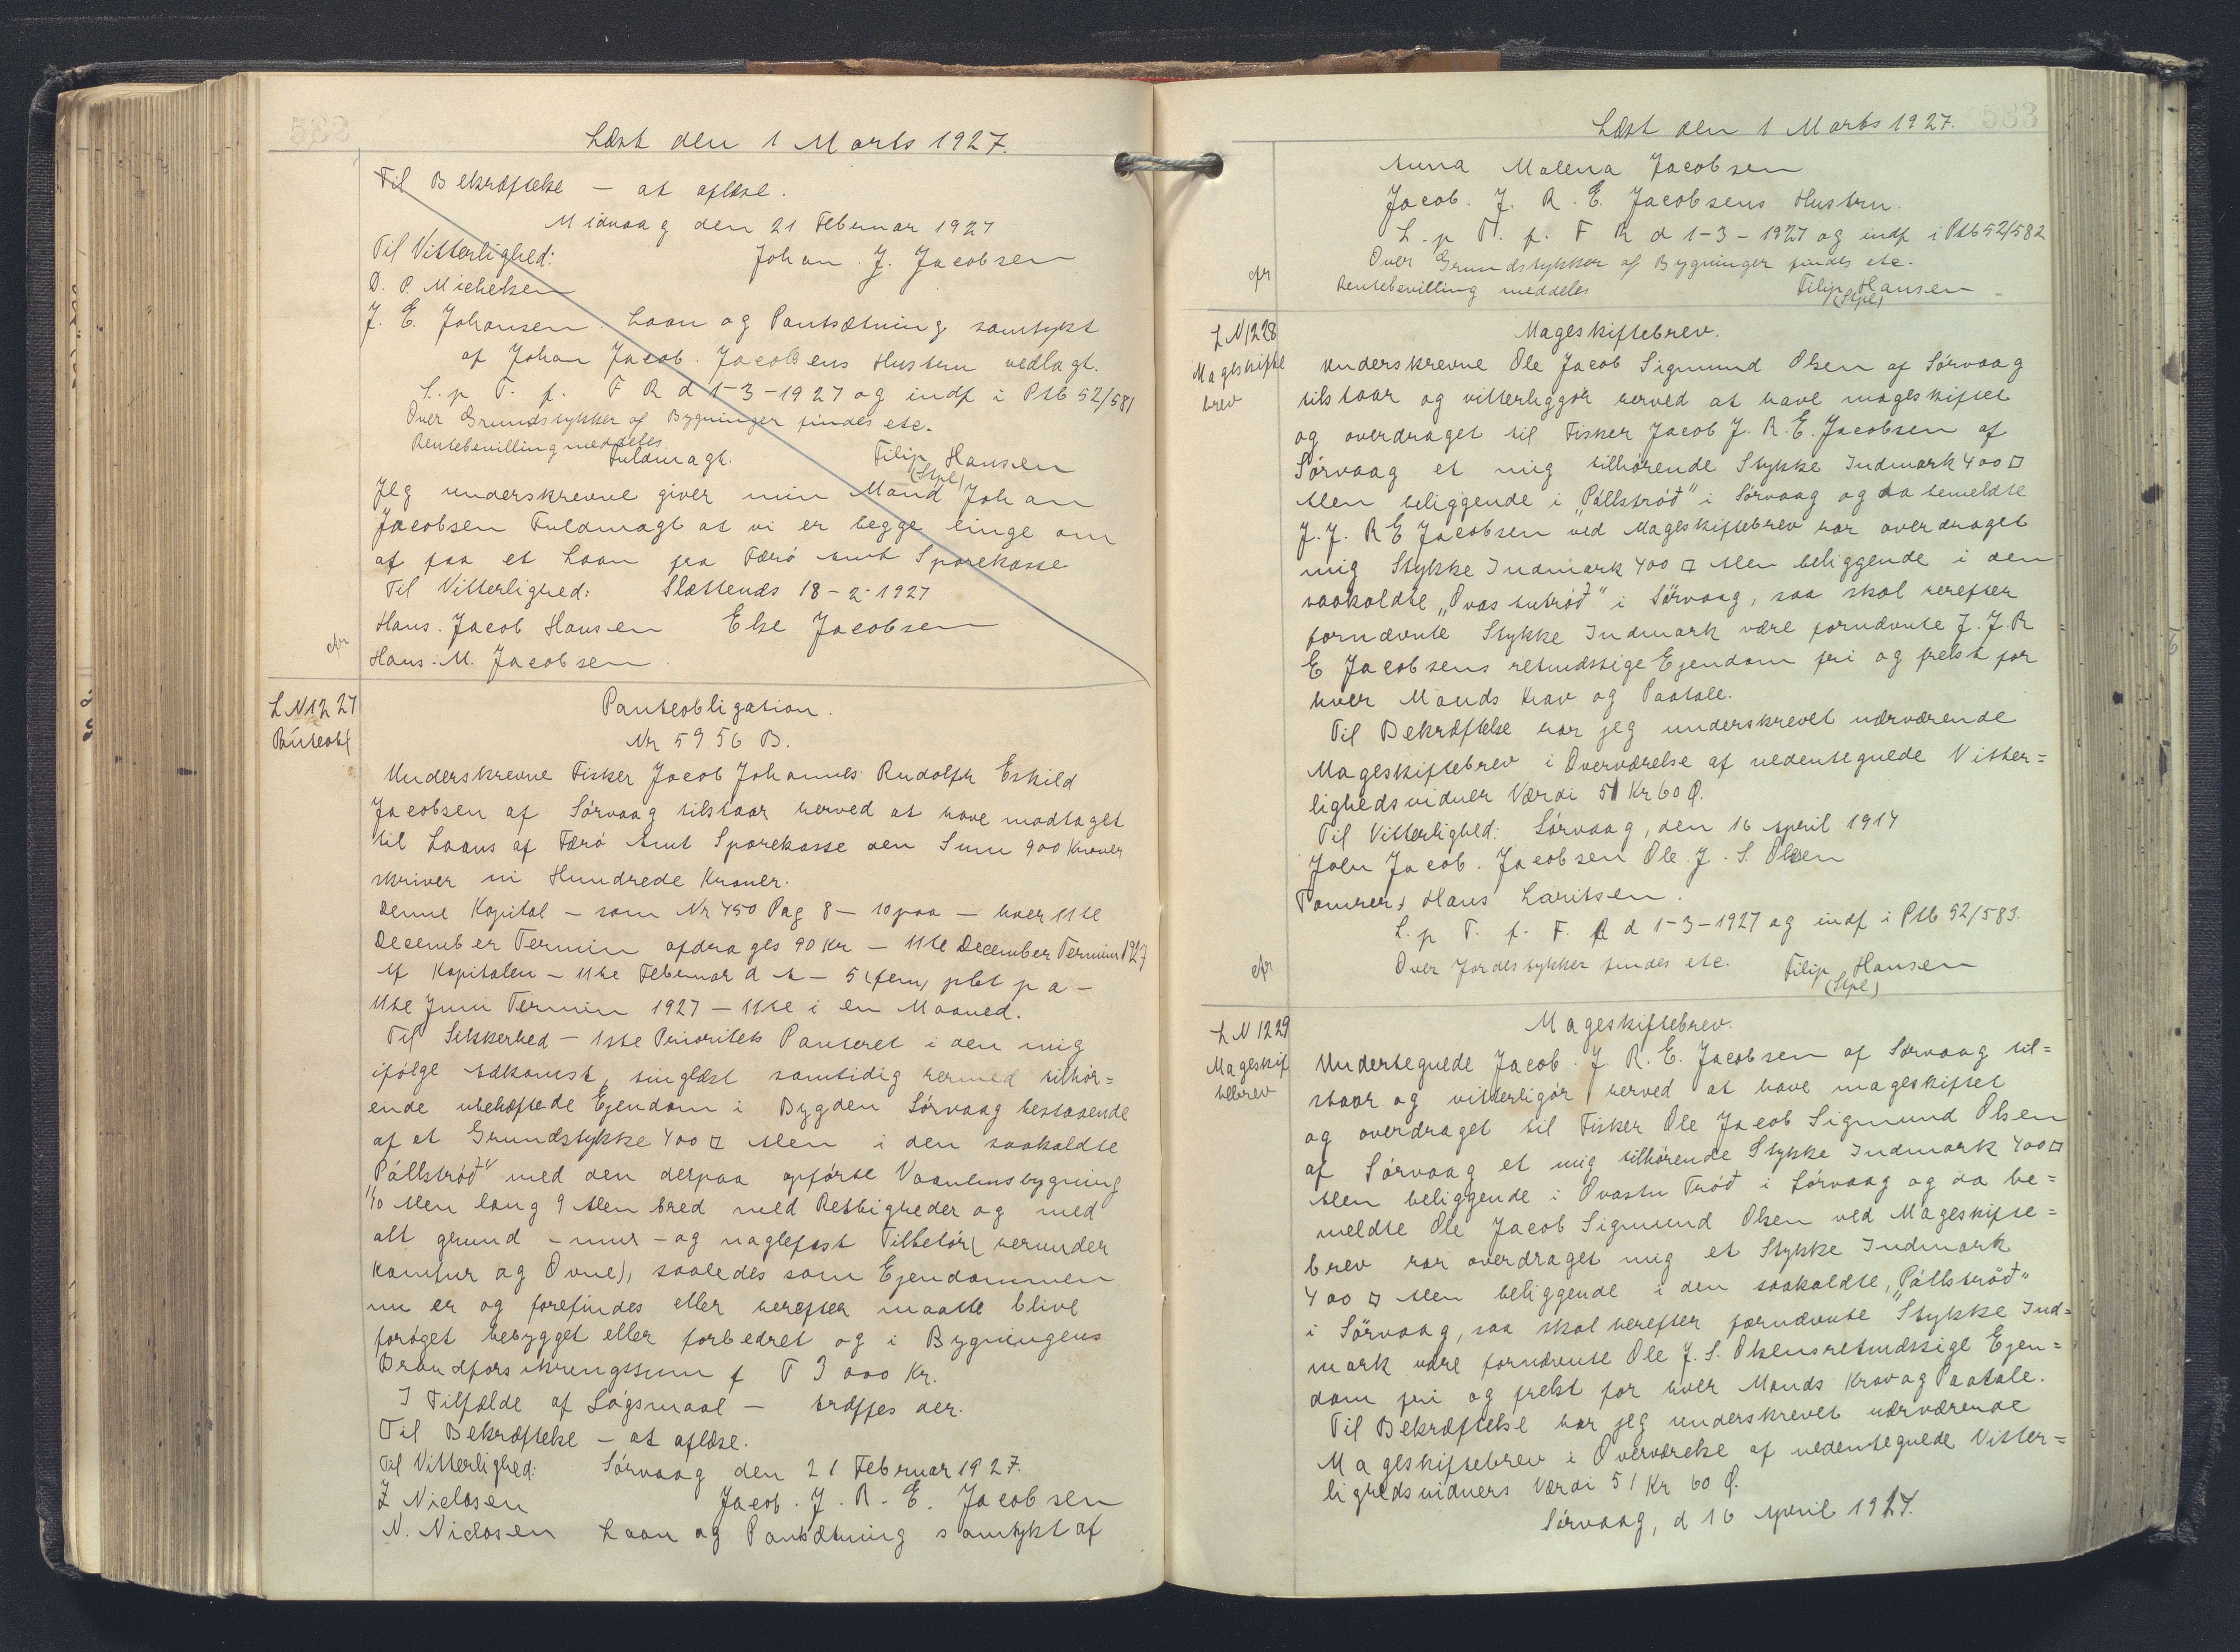 582
Læst den 1 Marts 1927.
Til Bekræftelse – at aflæse.
Midvaag den 21 Februar 1927
Til Vitterlighed: Johan. J. Jacobsen
D. P. Michelsen
J. E. Johansen. Laan og Pantsætning samtykt
af Johan Jacob. Jacobsens Hustru vedlagt.
L. p T. f. F R d 1-3-1927 og indf i Ptb 52/581
Over Grundstykker af Bygninger findes etc.
Rentebevilling meddeles. Filip Hansen
(Stpl)
Fuldmagt.
Jeg underskrevne giver min Mand Johan
Jacobsen Fuldmagt at vi er begge einge om
at faa et Laan fra Færö Amt Sparekasse
Til Vitterlighed: Slættenes 18-2-1927
Hans. Jacob Hansen Else Jacobsen
cfr
Hans. M. Jacobsen
L N 1227
Panteobl
Panteobligation.
Nr 5956 B.
Underskrevne Fisker Jacob Johannes Rudolph Eskild
Jacobsen af Sörvaag tilstaar herved at have modtaget
til Laans af Færö Amt Sparekasse den Sum 900 Kroner
skriver ni Hundrede Kroner.
Denne Kapital – som Nr 450 Pag 8 – 10 paa – hver 11te
December Termin afdrages 90 Kr – 11te December Termin 1927
Af Kapitalen – 11te Februar d A – 5 (fem) pCt p a –
11te Juni Termin 1927 – 11te i en Maaned.
Til Sikkerhed – 1ste Prioritets Panteret i den mig
ifölge Adkomst, tinglæst samtidig hermed tilhör=
ende ubehæftede Ejendom i Bygden Sörvaag bestaaende
af et Grundstykke 400 □ Alen i den saakaldte
Pállströð" med den derpaa opförte Vaaningsbygning
10 Alen lang 9 Alen bred med Rettigheder og med
alt grund – mur – og naglefast Tilbehör (herunder
Komfur og Ovne), saaledes som Ejendommen
nu er og forefindes eller herefter maatte blive
foröget bebygget eller forbedret og i Bygningens
Brandforsikringssum f T 3000 Kr.
I Tilfælde af Lögsmaal – træffes der.
Til Bekræftelse – at aflæse.
Til Vitterlighed: Sörvaag den 21 Februar 1927.
Z Niclasen Jacob. J. R. E. Jacobsen
N. Niclasen Laan og Pantsætning samtykt af
583
Læst den 1 Marts 1927.
Anna Malena Jacobsen
Jacob. J. R. E. Jacobsens Hustru.
L. p T. f. F R d 1-3-1927 og indf i Ptb 52/582
Over Grundstykker af Bygninger findes etc.
cfr
Rentebevilling meddeles Filip Hansen
(Stpl)
L N 1228
Mageskifte
brev
Mageskiftebrev.
Underskrevne Ole Jacob Sigmund Olsen af Sörvaag
tilstaar og vitterliggör herved at have mageskiftet
og overdraget til Fisker Jacob J. R. E. Jacobsen af
Sörvaag et mig tilhörende Stykke Indmark 400 □
Alen beliggende i "Pállströð" i Sörvaag og da bemeldte
J. J. R E Jacobsen ved Mageskiftebrev har overdraget
mig Stykke Indmark 400 □ Alen beliggende i den
saakaldte "Ovastutröð" i Sörvaag, saa skal herefter
fornævnte Stykke Indmark være fornævnte J. J. R
E Jacobsens retmæssige Ejendom fri og frelst for
hver Mands Krav og Paatale.
Til Bekræftelse har jeg underskrevet nærværende
Mageskiftebrev i Overværelse af nedentegnede Vitter=
lighedsvidner Værdi 51 Kr 60 Ø.
Til Vitterlighed: Sörvaag, den 16 April 1914
John Jacob. Jacobsen Ole. J. S. Olsen
Tömrer, Hans Laritsen.
L. p T. f. F. R d 1-3-1927 og indf i Ptb 52/583.
cfr
Over Jordestykker findes etc. Filip Hansen
(Stpl)
L N 1229
Mageskif
tebrev
Mageskiftebrev.
Undertegnede Jacob. J. R. E. Jacobsen af Sörvaag til=
staar og vitterligör herved at have mageskiftet
og overdraget til Fisker Ole Jacob Sigmund Olsen
af Sörvaag et mig tilhörende Stykke Indmark 400 □
Alen beliggende i Ovastu Tröð i Sörvaag og da be=
meldte Ole Jacob Sigmund Olsen ved Mageskifte=
brev har overdraget mig et Stykke Indmark
400 □ Alen beliggende i den saakaldte, "Pállströð"
i Sörvaag, saa skal herefter fornævnte Stykke Ind=
mark være fornævnte Ole J. S. Olsens retmæssige Ejen=
dom fri og frelst for hver Mands Krav og Paatale.
Til Bekræftelse har jeg underskrevet nærværende
Mageskiftebrev i Overværelse af nedentegnede Vitter=
lighedsvidners Værdi 51 Kr 60 Ø.
Sörvaag, d 16 April 1914.